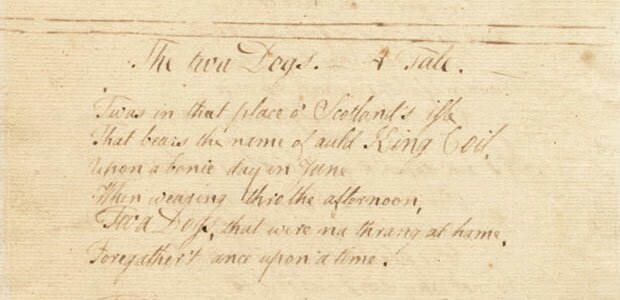 The twa Dogs. — A Tale.
Twas in that place o' Scotland's isle
That bears the name of auld King Coil,
Upon a bonie day in June
When wearing thro' the afternoon,
Twa Dogs, that were na thrang at hame,
Foregather't ance upon a time.